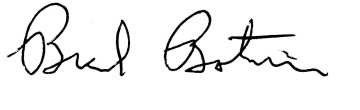 Brad Botwin